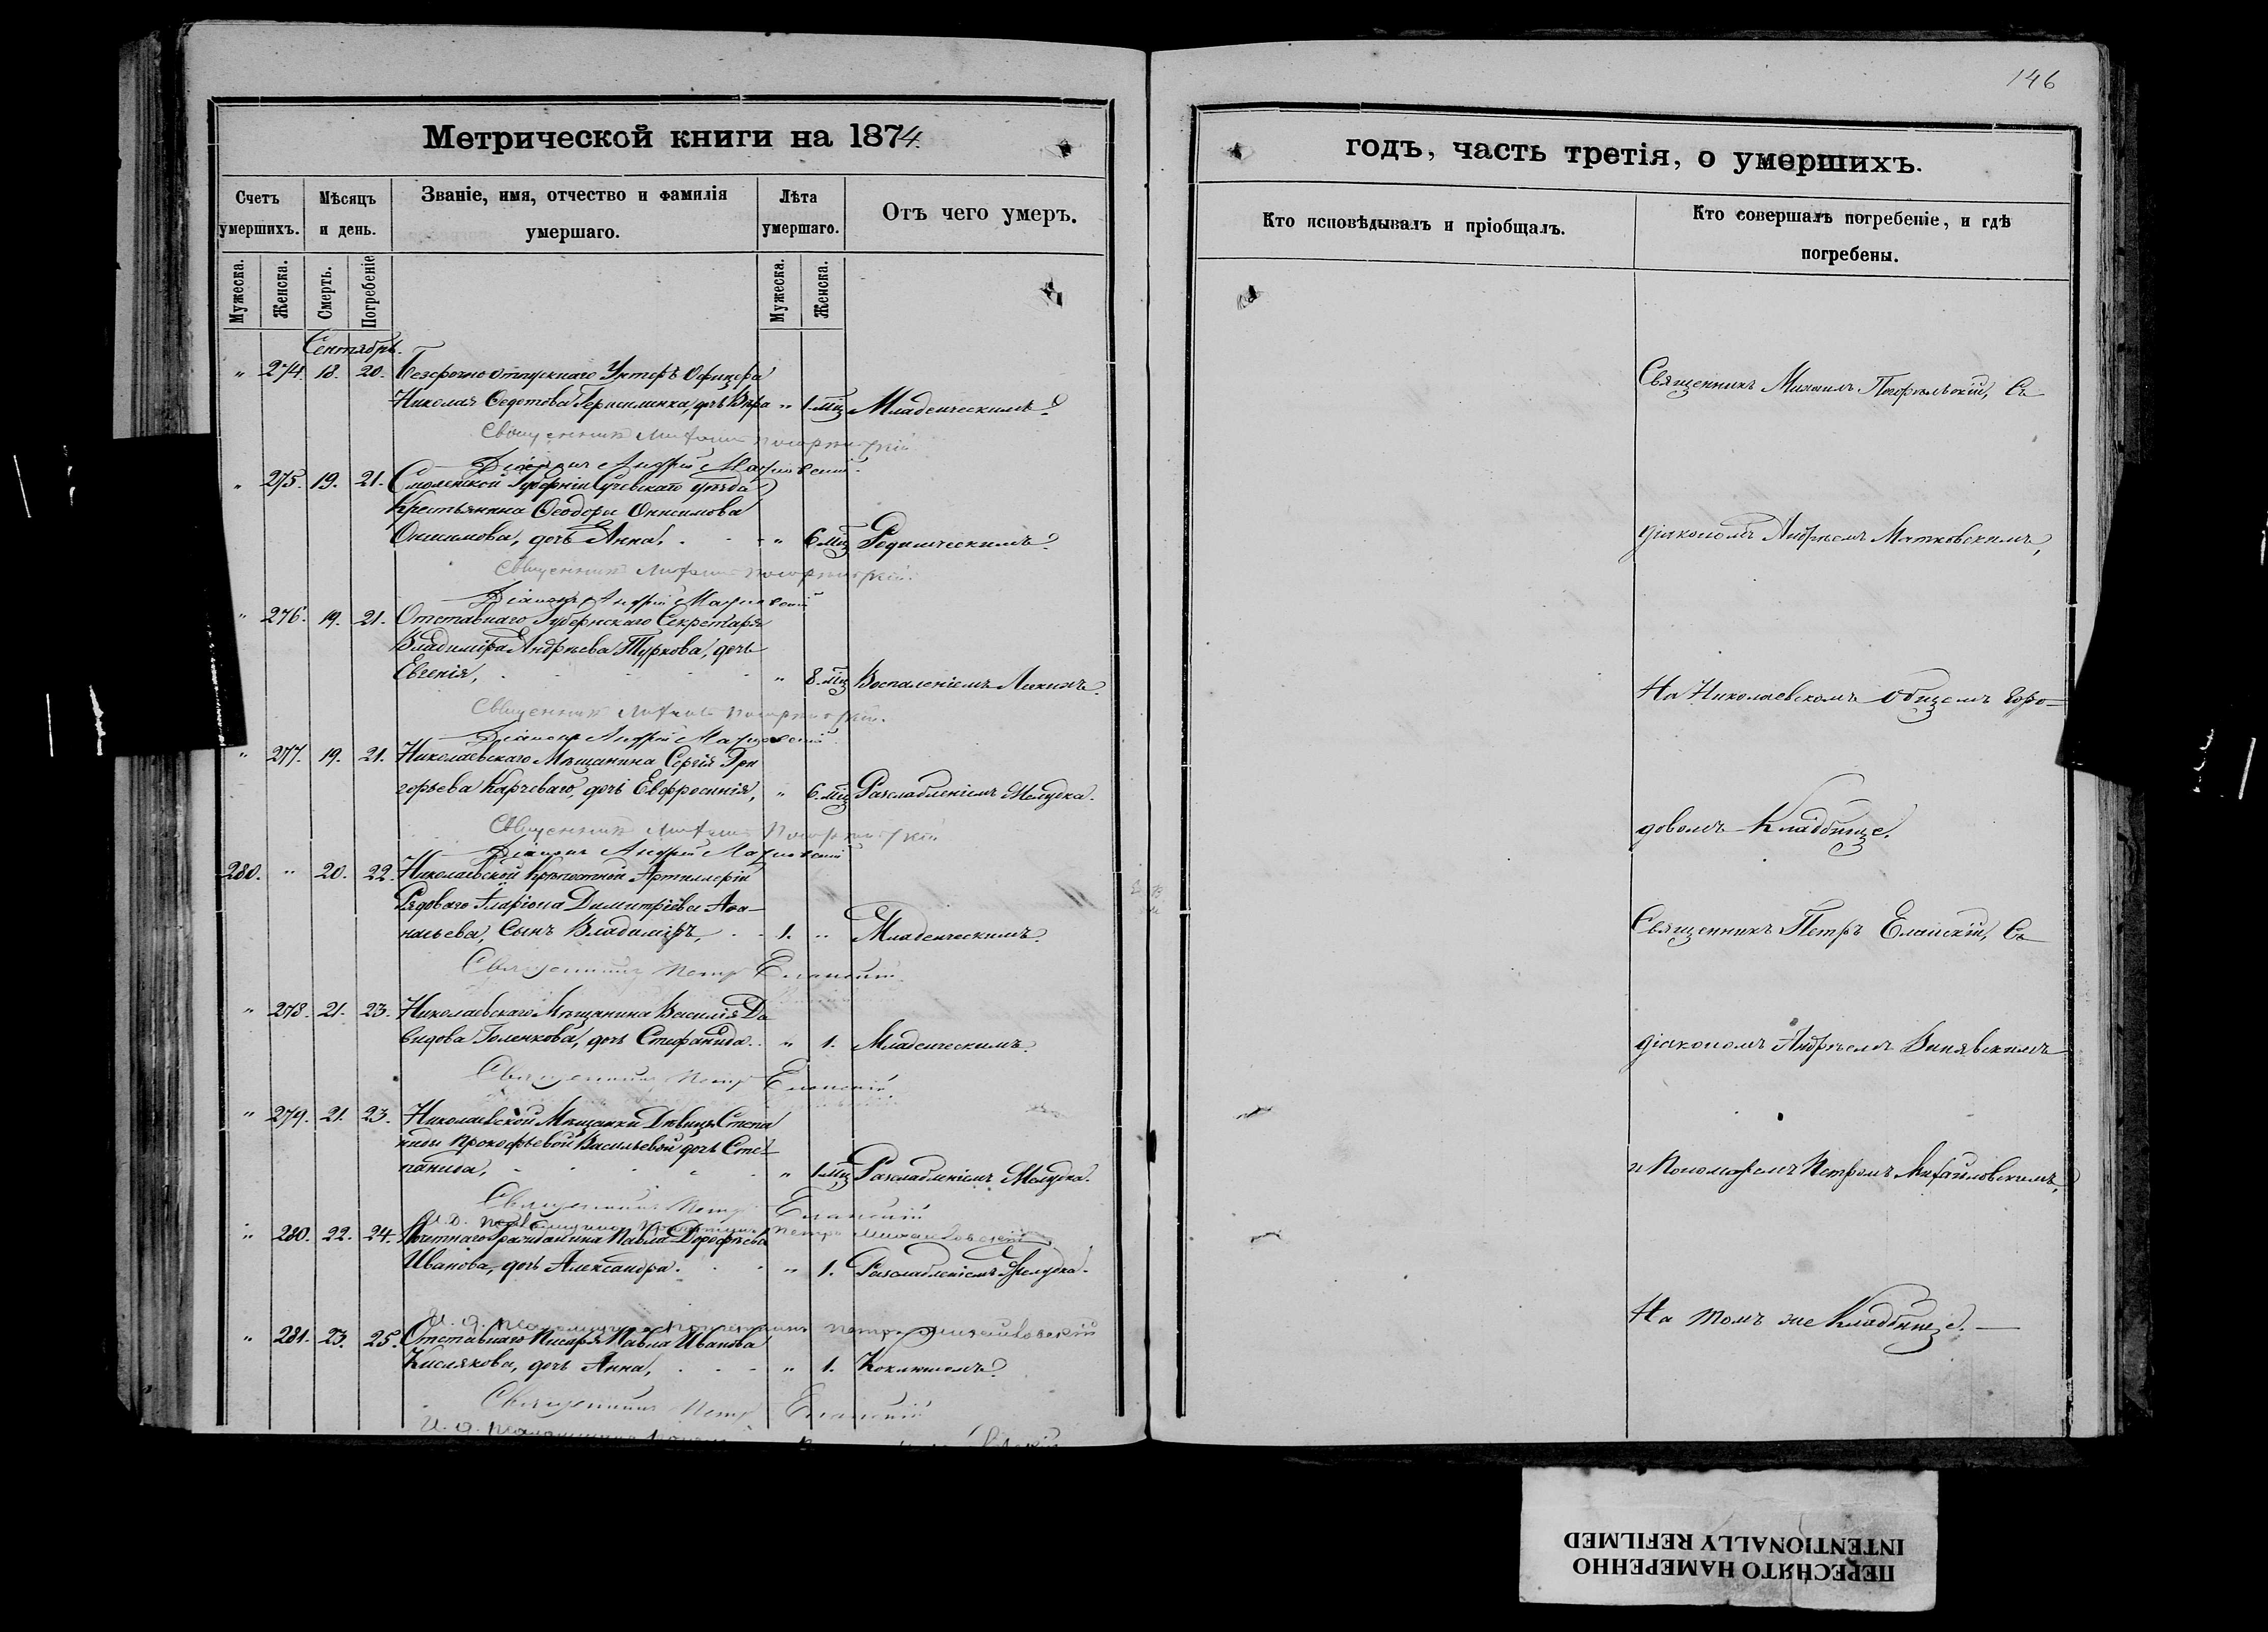 146
Метрической книги на 1874
годъ, часть третія, о умершихъ.
Счетъ умершихъ.
Мѣсяцъ и день.
Званіе, имя, отчество и фамилія умершаго.
Лѣта умершаго.
Отъ чего умеръ.
Кто исповѣдывалъ и пріобщалъ.
Кто совершалъ погребеніе, и гдѣ погребены.
Мужеска.
Женска.
Смерть.
Погребеніе
Мужеска.
Женска.
Сентябрь.
" 274. 18. 20. Безсрочноотпускнаго Унтеръ Офицера
Николая Герасименка, дочь Вѣра " 1. мц Младенческимъ.
Священникъ Михаилъ
Діаконъ Андрей Матковскій.
" 275. 19. 21. Смоленской Губерніи Сычевскаго уѣзда
Крестьянина Ѳеодора Онисимова
Онисимова, дочь Анна, " 6 мц Родимческимъ.
Священникъ Михаилъ
Діаконъ Андрей Матковскій
" 276. 19. 21. Отставнаго Губернскаго Секретаря
Владиміра Андреева Туркова, дочь
Евгенія, " 8. мц Воспаленіемъ Легкихъ.
Священникъ Михаилъ
Діаконъ Андрей Матковскій
" 277. 19. 21. Николаевскаго Мѣщанина Сергія Гри
горьева Карчеваго, дочь Евфросинія, " 6. мц Разслабленіемъ Желудка.
Священникъ Михаилъ
Діаконъ Андрей Матковскій
280. " 20. 22. Николаевской Крѣпостной Артиллеріи
Рядоваго Иларіона Димитріева Аѳа-
насьева, сынъ Владиміръ, 1. " Младенческимъ.
Священникъ Петръ Еланскій
" 278. 21. 23. Николаевскаго Мѣщанина Василія Да
видова Голенкова, дочь Стефанида. " 1. Младенческимъ.
Священникъ Петръ Еланскій
" 279. 21. 23. Николаевской Мѣщанки Дѣвицы Степа
ниды Прокофьевой Васильевой дочь Сте-
панида, " 1 мц Разслабленіемъ Желудка.
Священникъ Петръ Еланскій
И. д. Петръ Михайловскій
" 280. 22. 24. Почетнаго Гражданина Павла Дорофѣева
Иванова, дочь Александра. " 1. Разслабленіемъ Желудка.
И. д. Петръ Михайловскій
" 281. 23. 25. Отставнаго Писаря Павла Иванова
Кислякова, дочь Анна, " 1. Коклюшемъ.
Священникъ Петръ Еланскій
И. д.
Священникъ Михаилъ Погорѣльскій, Съ
діакономъ Андреемъ Матковскимъ,
На Николаевскомъ Общемъ Горо-
довомъ Кладбище.
Священникъ Петръ Еланскій, Съ
діакономъ Андреемъ Винявскимъ
и Пономаремъ Петромъ Михайловскимъ,
На томъ же Кладбище. —
ПЕРЕСНЯТО НАМЕРЕННО
INTENTIONALLY REFILMED